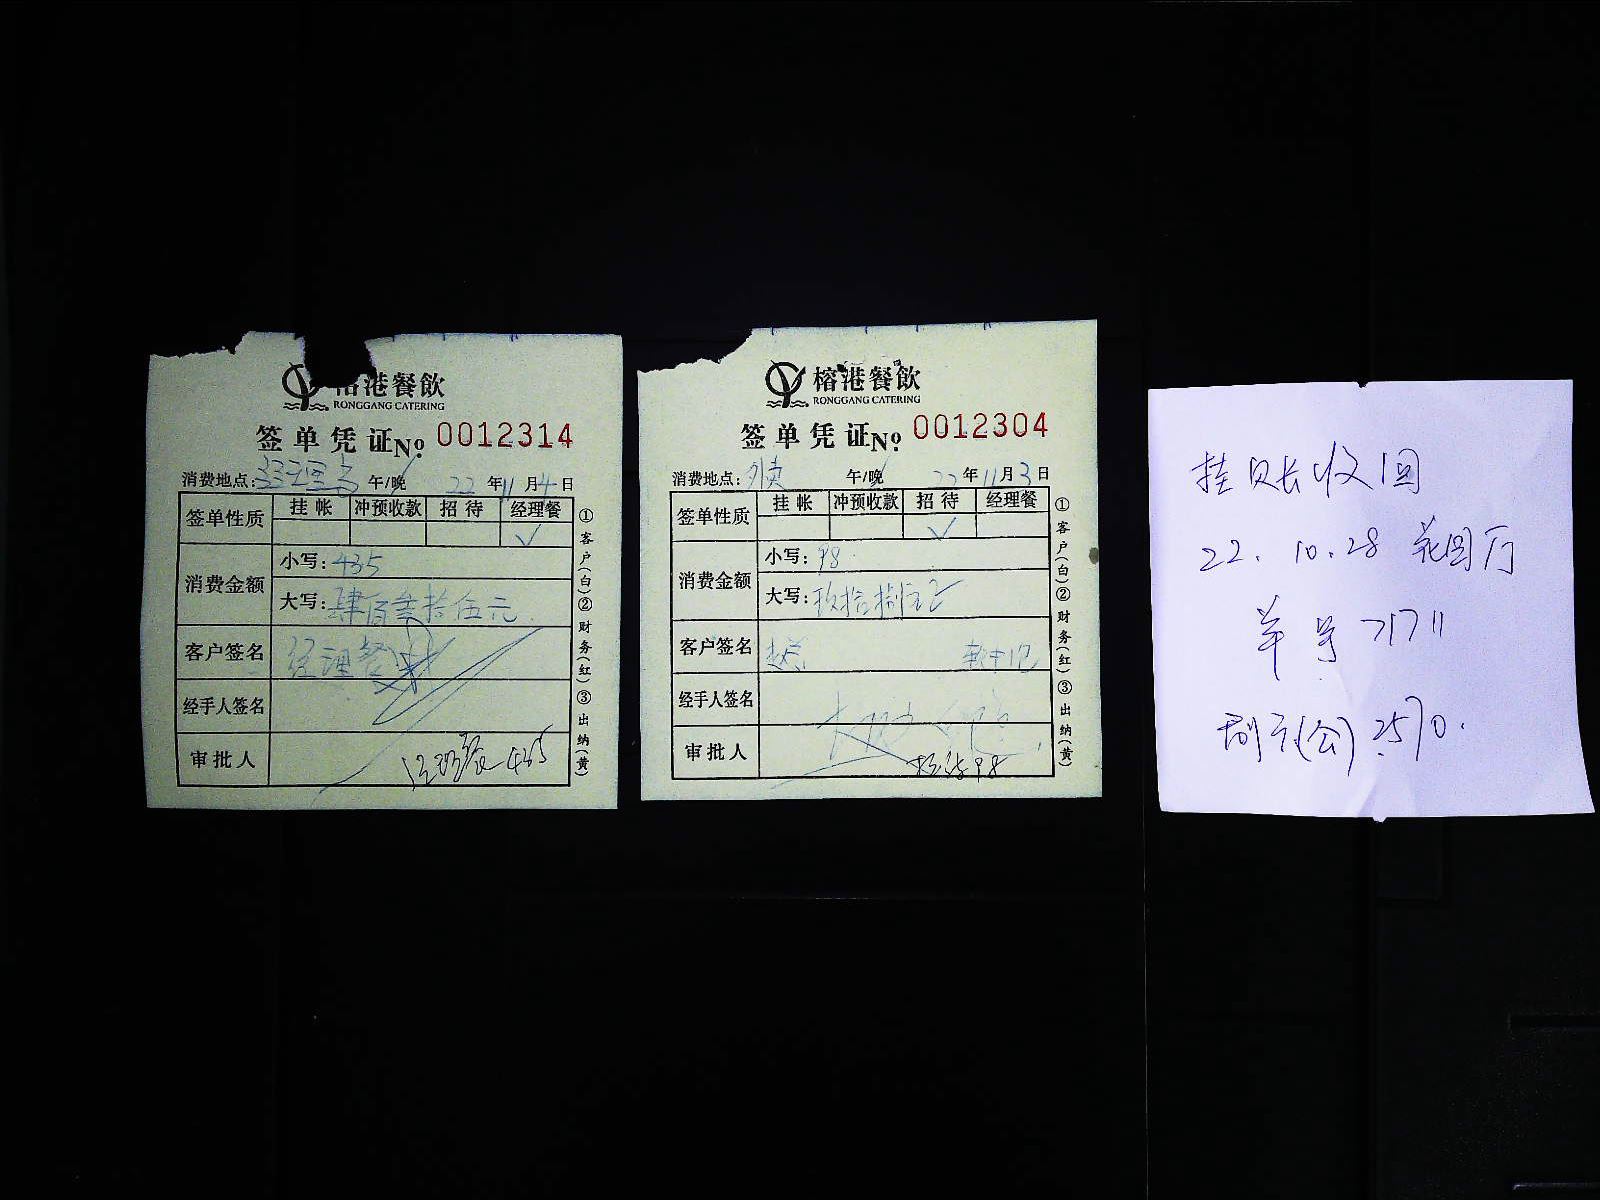 港餐飲
RONGGANG CATERING
签单凭证 No. 0012314
消费地点: 午/晚 22年11月4日
签单性质 挂帐 冲预收款 招待 经理餐
✓
消费金额 小写: 435
大写: 肆佰叁拾伍元
客户签名 经理餐
经手人签名
审批人 经理餐 435
①客户(白)②财务(红)③出纳(黄)
榕港餐飲
RONGGANG CATERING
签单凭证 No. 0012304
消费地点: 外卖 午/晚 22年11月3日
签单性质 挂帐 冲预收款 招待 经理餐
✓
消费金额 小写: 98
大写: 玖拾捌元
客户签名
经手人签名
审批人 招待98
①客户(白)②财务(红)③出纳(黄)
挂账收回
22.10.28 花园厅
单号 71711
刷卡(公) 2570.